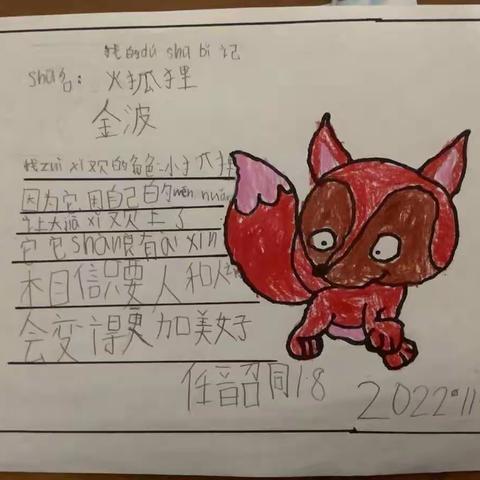 我的dú shū bǐ记
shū名：火狐狸
金波
我zuì xǐ欢的角色：小火狐狸
因为它用自己的wēn nuǎn
让大jiā xǐ欢上了
它 它shàn良有ài xīn
相信只要人和人
会变得更加美好
任韶同1.8
2022.11